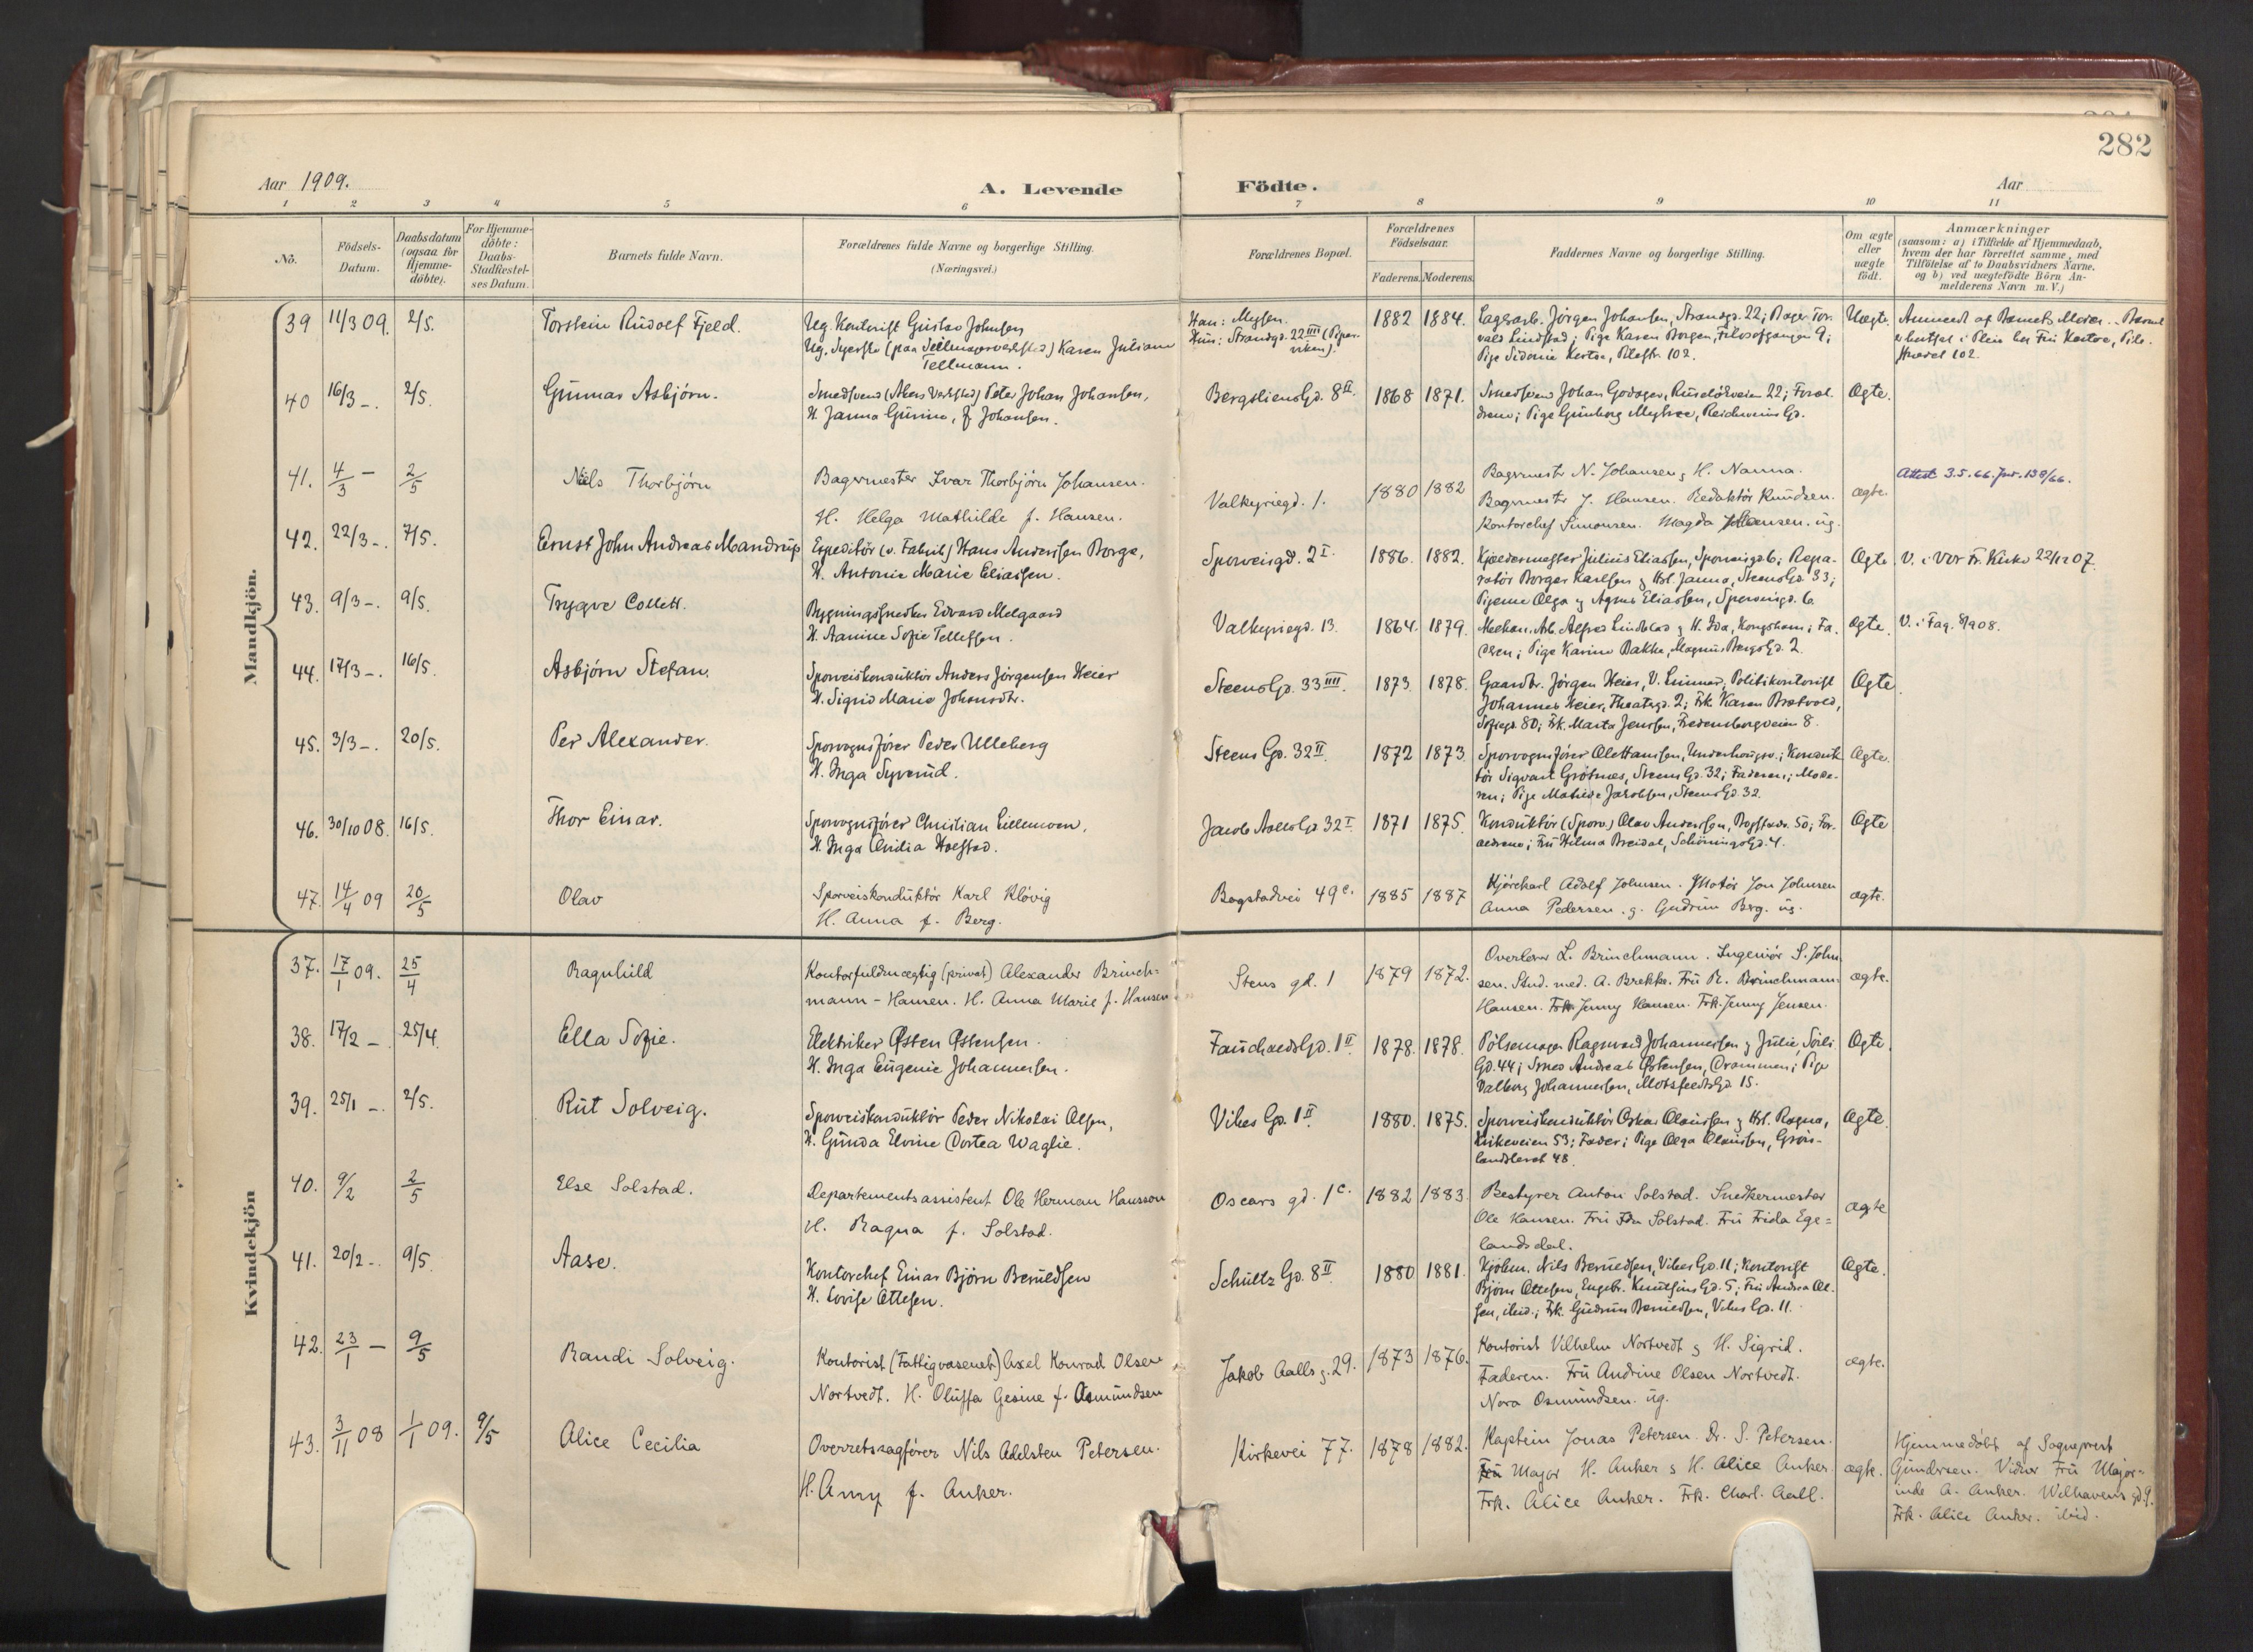 282
Aar 1909.
A. Levende Födte.
Aar
1 2 3 4 5 6 7 8 9 10 11
No.
Födsels-
Datum.
Daabsdatum
(ogsaa for
Hjemme-
döbte).
For Hjemme-
döbte:
Daabs-
Stadfæstel-
ses Datum.
Barnets fulde Navn.
Forældrenes fulde Navne og borgerlige Stilling.
(Næringsvei.)
Forældrenes Bopæl.
Forældrenes
Födselsaar.
Faderens. Moderens.
Faddernes Navne og borgerlige Stilling.
Om ægte
eller
uægte
födt.
Anmærkninger
(saasom: a) i Tilfælde af Hjemmedaab,
hvem der har forrettet samme, med
Tilföielse af to Daabsvidners Navne.
og b) ved uægtefödte Börn An-
melderens Navn m. V.)
Mandkjön.
39 11/3 09. 2/5. Torstein Rudolf Fjeld.
Ug. Kontorist Gustav Johnsen
Ug. Syerske (paa Seilmagerverksted) Karen Juliane
Tellmann.
Han: Mysen.
Hun: Strandgd. 22 IIII (Piper-
viken).
1882 1884.
Lagerarb. Jörgen Johansen, Strandgd. 22; Bager Tor-
vald Lindstad; Pige Karen Borgen, Filosofgangen 9;
Pige Sidonie Kertoe, Pilestr. 102.
Uægte.
Anmeldt af Barnets Moder. Barnet
er bortsat i Pleie hos Fru Kertoe, Pile-
strædet 102.
40 16/3 -. 2/5. Gunnar Asbjörn.
Smedsvend (Akers Verksted) Peter Johan Johansen,
H. Janna Gurine, f. Johansen.
Bergsliens Gd. 8 II. 1868 1871.
Smedsvend Johan Godager, Ruselökveien 22; Foræl-
drene; Pige Gunborg Myhre, Reichweins Gd.
Ægte.
41. 4/3 - 2/5 Nils Thorbjörn
Bagermester Ivar Thorbjörn Johansen.
H. Helga Mathilde f. Hansen.
Valkyriegd. 1. 1880 1882
Bagermestr N. Johansen & H. Nanna.
Bagermestr J. Hansen. Redaktör Knudsen.
Kontorchef Simonsen. Magda Johansen. ug.
ægte.
Attest 3.5.66. Jnr. 138/66.
42. 22/3 -. 7/5. Ernst John Andreas Mandrup
Expeditör (v. Fabrik) Hans Anderssen Borge,
H. Antonie Marie Eliassen.
Sporveisgd. 2 I. 1886. 1882.
Kjeldermester Julius Eliassen, Sporveisgd. 6; Repa-
ratör Borger Karlsen & Hst. Janna, Steens Gd. 33;
Pigerne Olga og Agnes Eliassen, Sporveisgd. 6.
Ægte.
V. i Vor Fr. Kirke 22/12 07.
43. 9/3 -. 9/5. Trygve Collett.
Bygningssnedker Edvard Melgaard
H. Aanine Sofie Tellefsen.
Valkyriegd. 13. 1864. 1879.
Mekan. Arb. Alfred Lindblad & H. Ida, Kongshavn; Fa-
deren; Pige Karine Bakke, Magnus Bergs Gd. 2.
Ægte.
V. i Fag. 8/9 08.
44. 17/3 -. 16/5. Asbjörn Stefan.
Sporveiskonduktör Anders Jörgensen Heier
H. Sigrid Marie Johansdtr.
Steens Gd. 33 IIII. 1873. 1878.
Gaardbr. Jörgen Heier, V. Linner; Politikontorist
Johannes Heier, Theatergd. 2; Frk. Karen Bratvold,
Sofiegd. 80; Frk. Marta Jenssen, Fredensborgveien 8.
Ægte.
45. 3/3 -. 20/5. Per Alexander.
Sporvognsförer Peder Ulleberg
H. Inga Syverud.
Steens Gd. 32 II. 1872 1873.
Sporvognsförer Ole Hanssen, Underhaugsv.; Konduk-
tör Sigvart Grötnes, Steens Gd. 32; Faderen; Mode-
ren; Pige Matilde Jakobsen, Steens Gd. 32.
Ægte.
46. 30/10 08. 16/5. Thor Einar.
Sporvognsförer Christian Lillemoen,
H. Inga Ovidia Hofstad.
Jacob Aalls Gd 32 I 1871 1875.
Konduktör (Sporv.) Olav Andersen, Bogstadv. 50; For-
ældrene; Fru Hilma Breidal, Schönings Gd. 4.
Ægte
47. 14/4 09 20/5 Olav
Sporveiskonduktör Karl Klövig
H. Anna f. Berg.
Bogstadvei 49 c. 1885 1887
Kjörekarl Adolf Johnsen. Matös Jon Johnsen
Anna Pedersen. g. Gudrun Berg. ug.
ægte.
Kvindekjön
37. 17/1 09. 25/4 Ragnhild
Kontorfuldmægtig (privat) Alexander Brinch-
mann-Hansen. H. Anna Marie f. Hansen
Stens gd. 1 1879 1872.
Overlærer L. Brinchmann. Ingeniör S. John-
sen. Stud. med. A. Brekke. Fru R. Brinchmann
Hansen. Frk Jenny Hansen. Frk. Jenny Jensen.
ægte.
38. 17/2 -. 25/4. Ella Sofie.
Elektriker Östen Östensen.
H. Inga Eugenie Johannessen.
Fauchalds Gd. 1 II. 1878. 1878.
Pölsemager Ragnvald Johannessen & Julie, Sörli
Gd. 44; Smed Andreas Östensen, Drammen; Pige
Valborg Johannessen, Motzfeldts Gd. 15.
Ægte.
39. 25/1 -. 2/5. Rut Solveig.
Sporveiskonduktör Peder Nikolai Olsen,
H. Gunda Elvine Dortea Waglie.
Vibes Gd. 1 II. 1880. 1875.
Sporveiskonduktör Oskar Olaussen & Hst. Ragna,
Kirkeveien 53; Fader; Pige Olga Olaussen, Grön-
landsleret 48.
Ægte.
40. 9/2 2/5 Else Solstad.
Departementsassistent Ole Herman Hansson
H. Ragna f. Solstad.
Oscars gd. 1 c. 1882 1883.
Bestyrer Anton Solstad. Snedkermester
Ole Hansen. Fru Solstad. Fru Frida Ege-
landsdal.
ægte
41. 20/2 -. 9/5. Aase.
Kontorchef Einar Björn Beruldsen
H. Lovise Ottesen.
Schultz Gd. 8 II. 1880 1881.
Kjöbm. Nils Beruldsen, Vibes Gd. 11; Kontorist
Björn Ottesen, Engebr. Knutsens Gd. 5; Fru Andrea Ot-
sen, ibid.; Frk. Gudrun Beruldsen, Vibes Gd. 11.
Ægte.
42. 23/1 - 9/5 Randi Solveig.
Kontorist (Fattigvæsenet) Axel Konrad Olsen
Nortvedt. H. Oluffa Gesine f. Osmundsen
Jakob Aalls g. 29. 1873 1876.
Kontorist Vilhelm Nortvedt & H. Sigrid.
Faderen. Fru Andrine Olsen Nortvedt.
Nora Osmundsen. ug.
ægte.
43. 3/11 08 1/1 09. 9/5 Alice Cecilia
Overretssagförer Nils Adelsten Petersen.
H. Amy f. Anker.
Kirkevei 77. 1878 1882.
Kaptein Jonas Petersen. Dr. S. Petersen.
Major H. Anker & H. Alice Anker.
Frk. Alice Anker. Frk. Charl. Aall.
ægte.
Hjemmedöbt af Sogneprest
Gundersen. Vidner Fru Major-
inde A. Anker. Welhavens gd. 9.
Frk. Alice Anker. ibid.